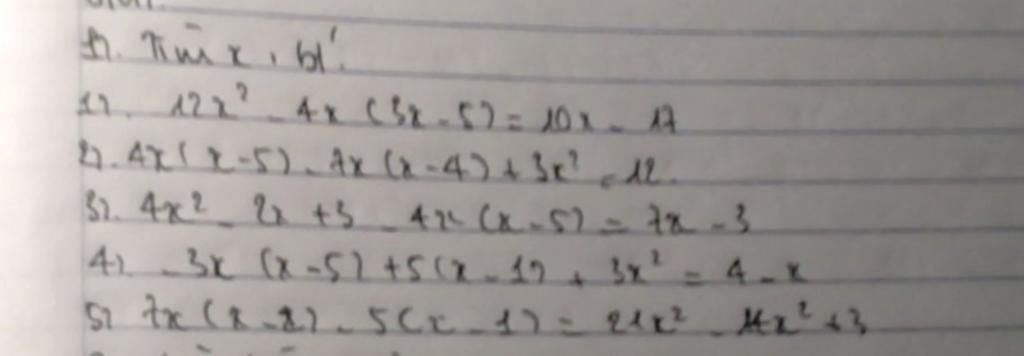 Tìm x, bt:
1). 12x² - 4x (3x - 5) = 10x - 17
2). 4x (x - 5) - 7x (x - 4) + 3x² = 12
3). 4x² - 2x + 3 - 4x (x - 5) = 7x - 3
4). - 3x (x - 5) + 5(x - 1) + 3x² = 4 - x
5) 7x (x - 2) - 5(x - 1) = 21x² - 14x² + 3